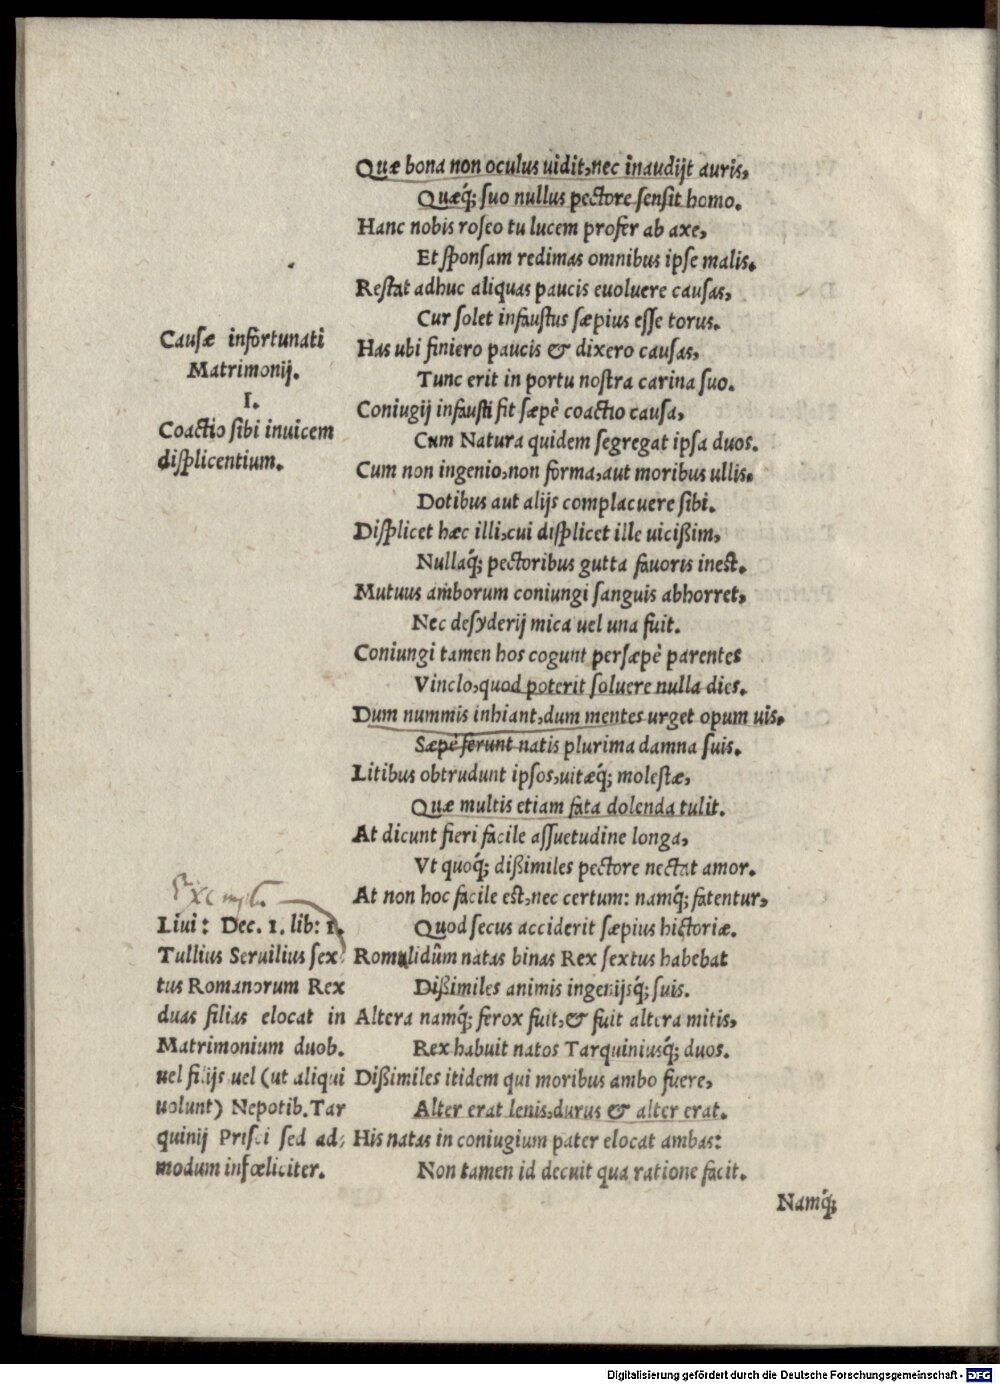 Quæ bona non oculus uidit, nec inaudijt auris,
Quæq́; suo nullus pectore sensit homo.
Hanc nobis roseo tu lucem profer ab axe,
Et sponsam redimas omnibus ipse malis.
Restat adhuc aliquas paucis euoluere causas,
Cur solet infaustus sæpius esse torus.
Has ubi finiero paucis & dixero causas,
Tunc erit in portu nostra carina suo.
Coniugij infausti fit sæpè coactio causa,
Cum Natura quidem segregat ipsa duos.
Cum non ingenio, non forma, aut moribus ullis.
Dotibus aut alijs complacuere sibi.
Displicet hæc illi, cui displicet ille uicißim,
Nullaq́; pectoribus gutta fauoris inest.
Mutuus amborum coniungi sanguis abhorret,
Nec desyderij mica uel una fuit.
Coniungi tamen hos cogunt persæpè parentes
Vinclo, quod poterit soluere nulla dies.
Dum nummis inhiant, dum mentes urget opum uis.
Sæpè ferunt natis plurima damna suis.
Litibus obtrudunt ipsos, uitæq́; molestæ,
Quæ multis etiam fata dolenda tulit.
At dicunt fieri facile assuetudine longa,
Vt quoq́; dißimiles pectore nectat amor.
At non hoc facile est, nec certum: namq́; fatentur,
Quod secus acciderit sæpius historiæ.
Romulidûm natas binas Rex sextus habebat
Dißimiles animis ingenijsq́; suis.
Altera namq́; ferox fuit, & fuit altera mitis,
Rex habuit natos Tarquiniusq́; duos.
Dißimiles itidem qui moribus ambo fuere,
Alter erat lenis, durus & alter erat.
His natas in coniugium pater elocat ambas:
Non tamen id decuit qua ratione facit.
Namq́;
Causæ infortunati
Matrimonij.
I.
Coactio sibi inuicem
displicentium.
Liui: Dec. 1. lib: 1.
Tullius Seruilius sex
tus Romanorum Rex
duas filias elocat in
Matrimonium duob.
uel filijs uel (ut aliqui
uolunt) Nepotib. Tar
quinij Prisci sed ad,
modum infœliciter.
Digitalisierung gefördert durch die Deutsche Forschungsgemeinschaft - DFG